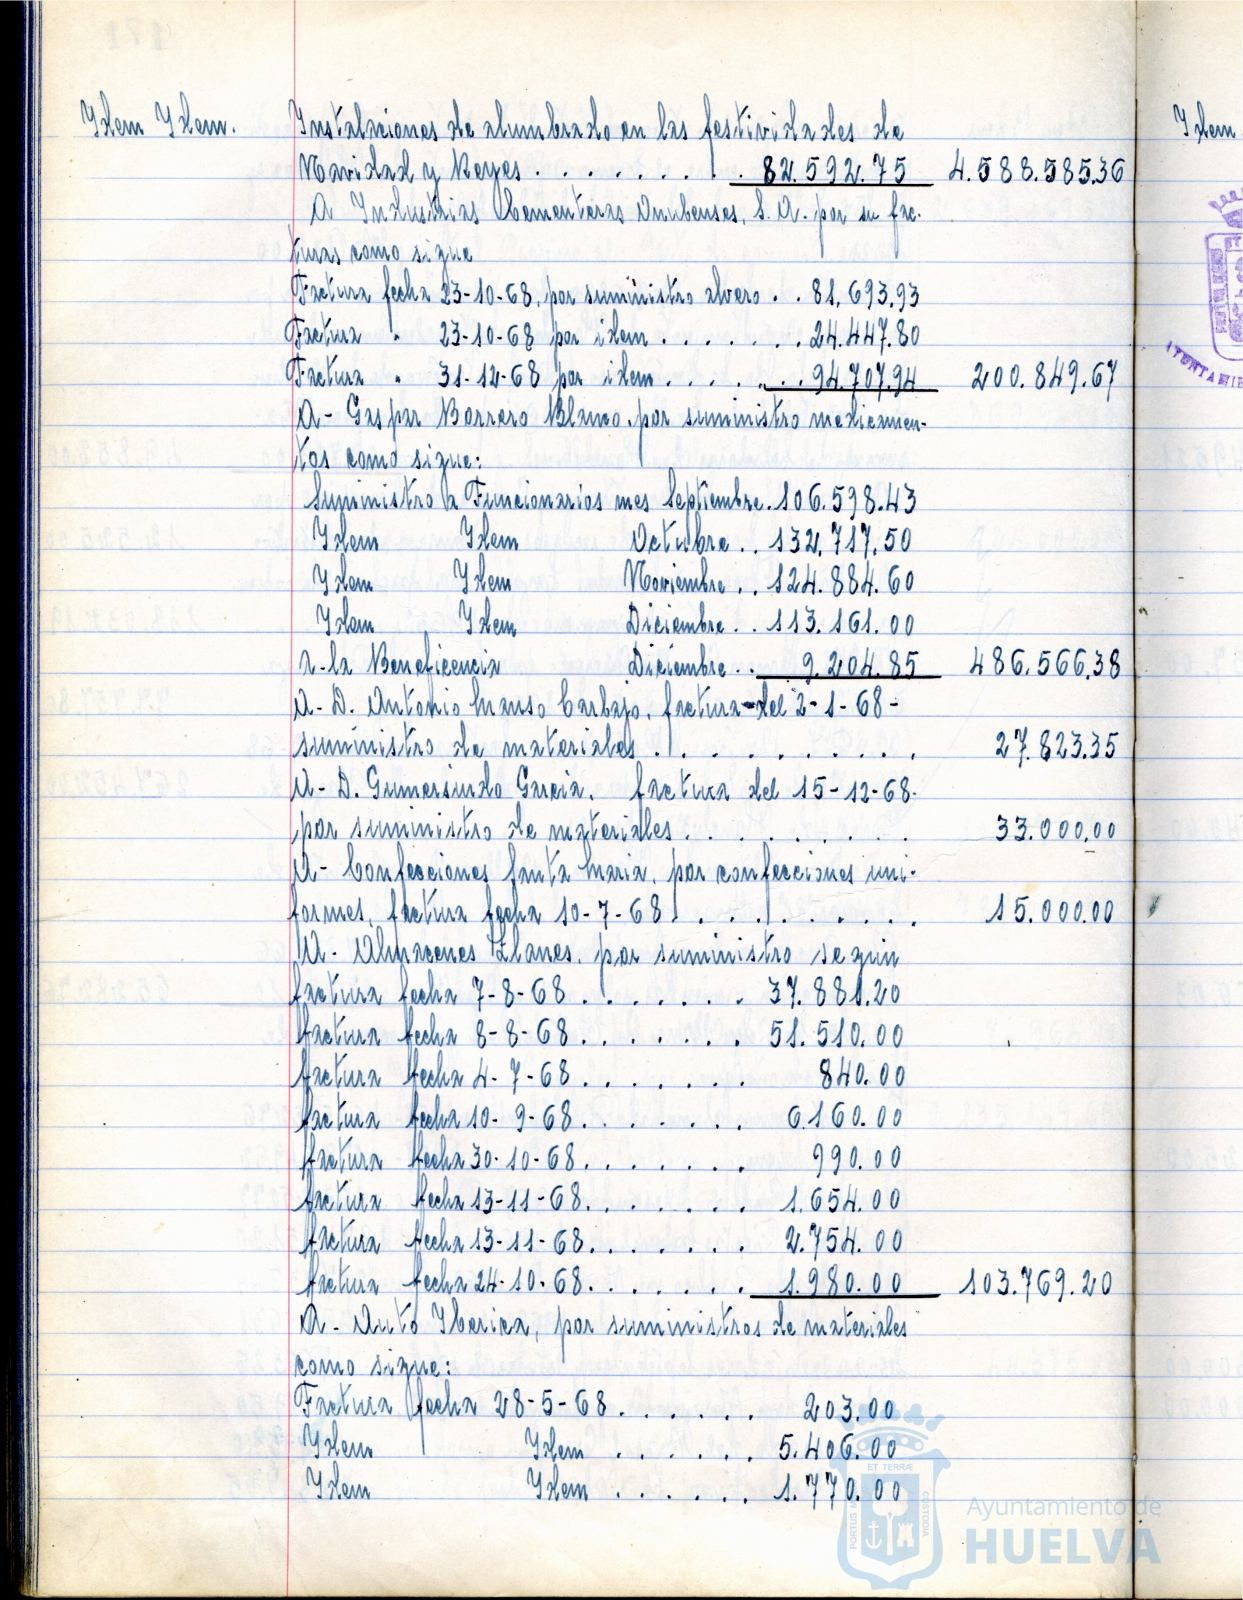 Idem Idem. Instalaciones de alumbrado en las festividades de
Navidad y Reyes . . . . . . . . 82.592.75 4.588.585.36
A Industrias Cementeras Onubenses, S. A. por su fac-
turas como sigue
Factura fecha 23-10-68, por suministro alvero . . 81.693.93
Factura " 23-10-68 por idem . . . . . . . 24.447.80
Factura " 31-12-68 por idem . . . . . . . 94.707.94 200.849.67
A- Gaspar Barrero Blanco, por suministro medicamen-
tos como sigue:
Suministro a Funcionarios mes Septiembre. 106.598.43
Idem Idem Octubre . . 132.717.50
Idem Idem Noviembre . . 124.884.60
Idem Idem Diciembre . . 113.161.00
a-la Beneficencia Diciembre . . 9.204.85 486.566,38
A- D. Antonio Manso Carbajo, factura del 2-1-68-
suministro de materiales . . . . . . . . . 27.823.35
A- D. Gumersindo Garcia, factura del 15-12-68.
por suministro de materiales . . . . . . . . 33.000.00
A- Confecciones Santa Maria, por confecciones uni-
formes, factura fecha 10-7-68 . . . . . . . . . 15.000.00
A- Almacenes Llanes, por suministro segun
factura fecha 7-8-68 . . . . . . . 37.881.20
factura fecha 8-8-68 . . . . . . . 51.510.00
factura fecha 4-7-68 . . . . . . . 840.00
factura fecha 10-9-68 . . . . . . . 6.160.00
factura fecha 30-10-68 . . . . . . . 990.00
factura fecha 13-11-68 . . . . . . . 1.654.00
factura fecha 13-11-68 . . . . . . . 2.754.00
factura fecha 24-10-68 . . . . . . . 1.980.00 103.769.20
A- Auto Iberica, por suministros de materiales
como sigue:
Factura fecha 28-5-68 . . . . . . 203.00
Idem Idem . . . . . . 5.406.00
Idem Idem . . . . . . 1.770.00
Idem
PORTUS MARIS ET TERRÆ CUSTODIA
Ayuntamiento de
HUELVA